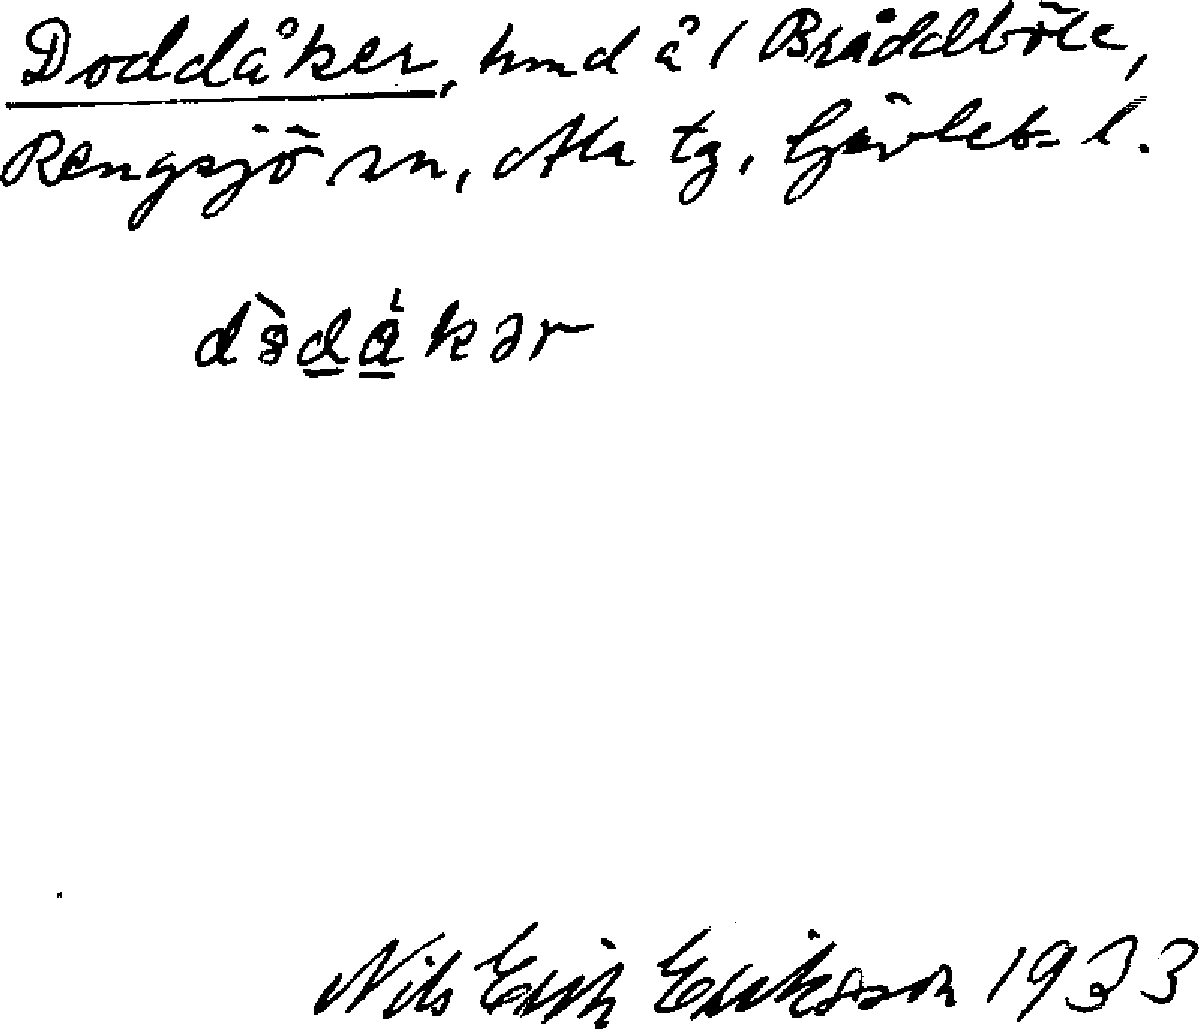 Doddåker, hmd å i Bråddböle,
Rengsjö sn, Ala tg, Gävleb. l.
dò̀dákər
Nils Erik Eriksson 1933